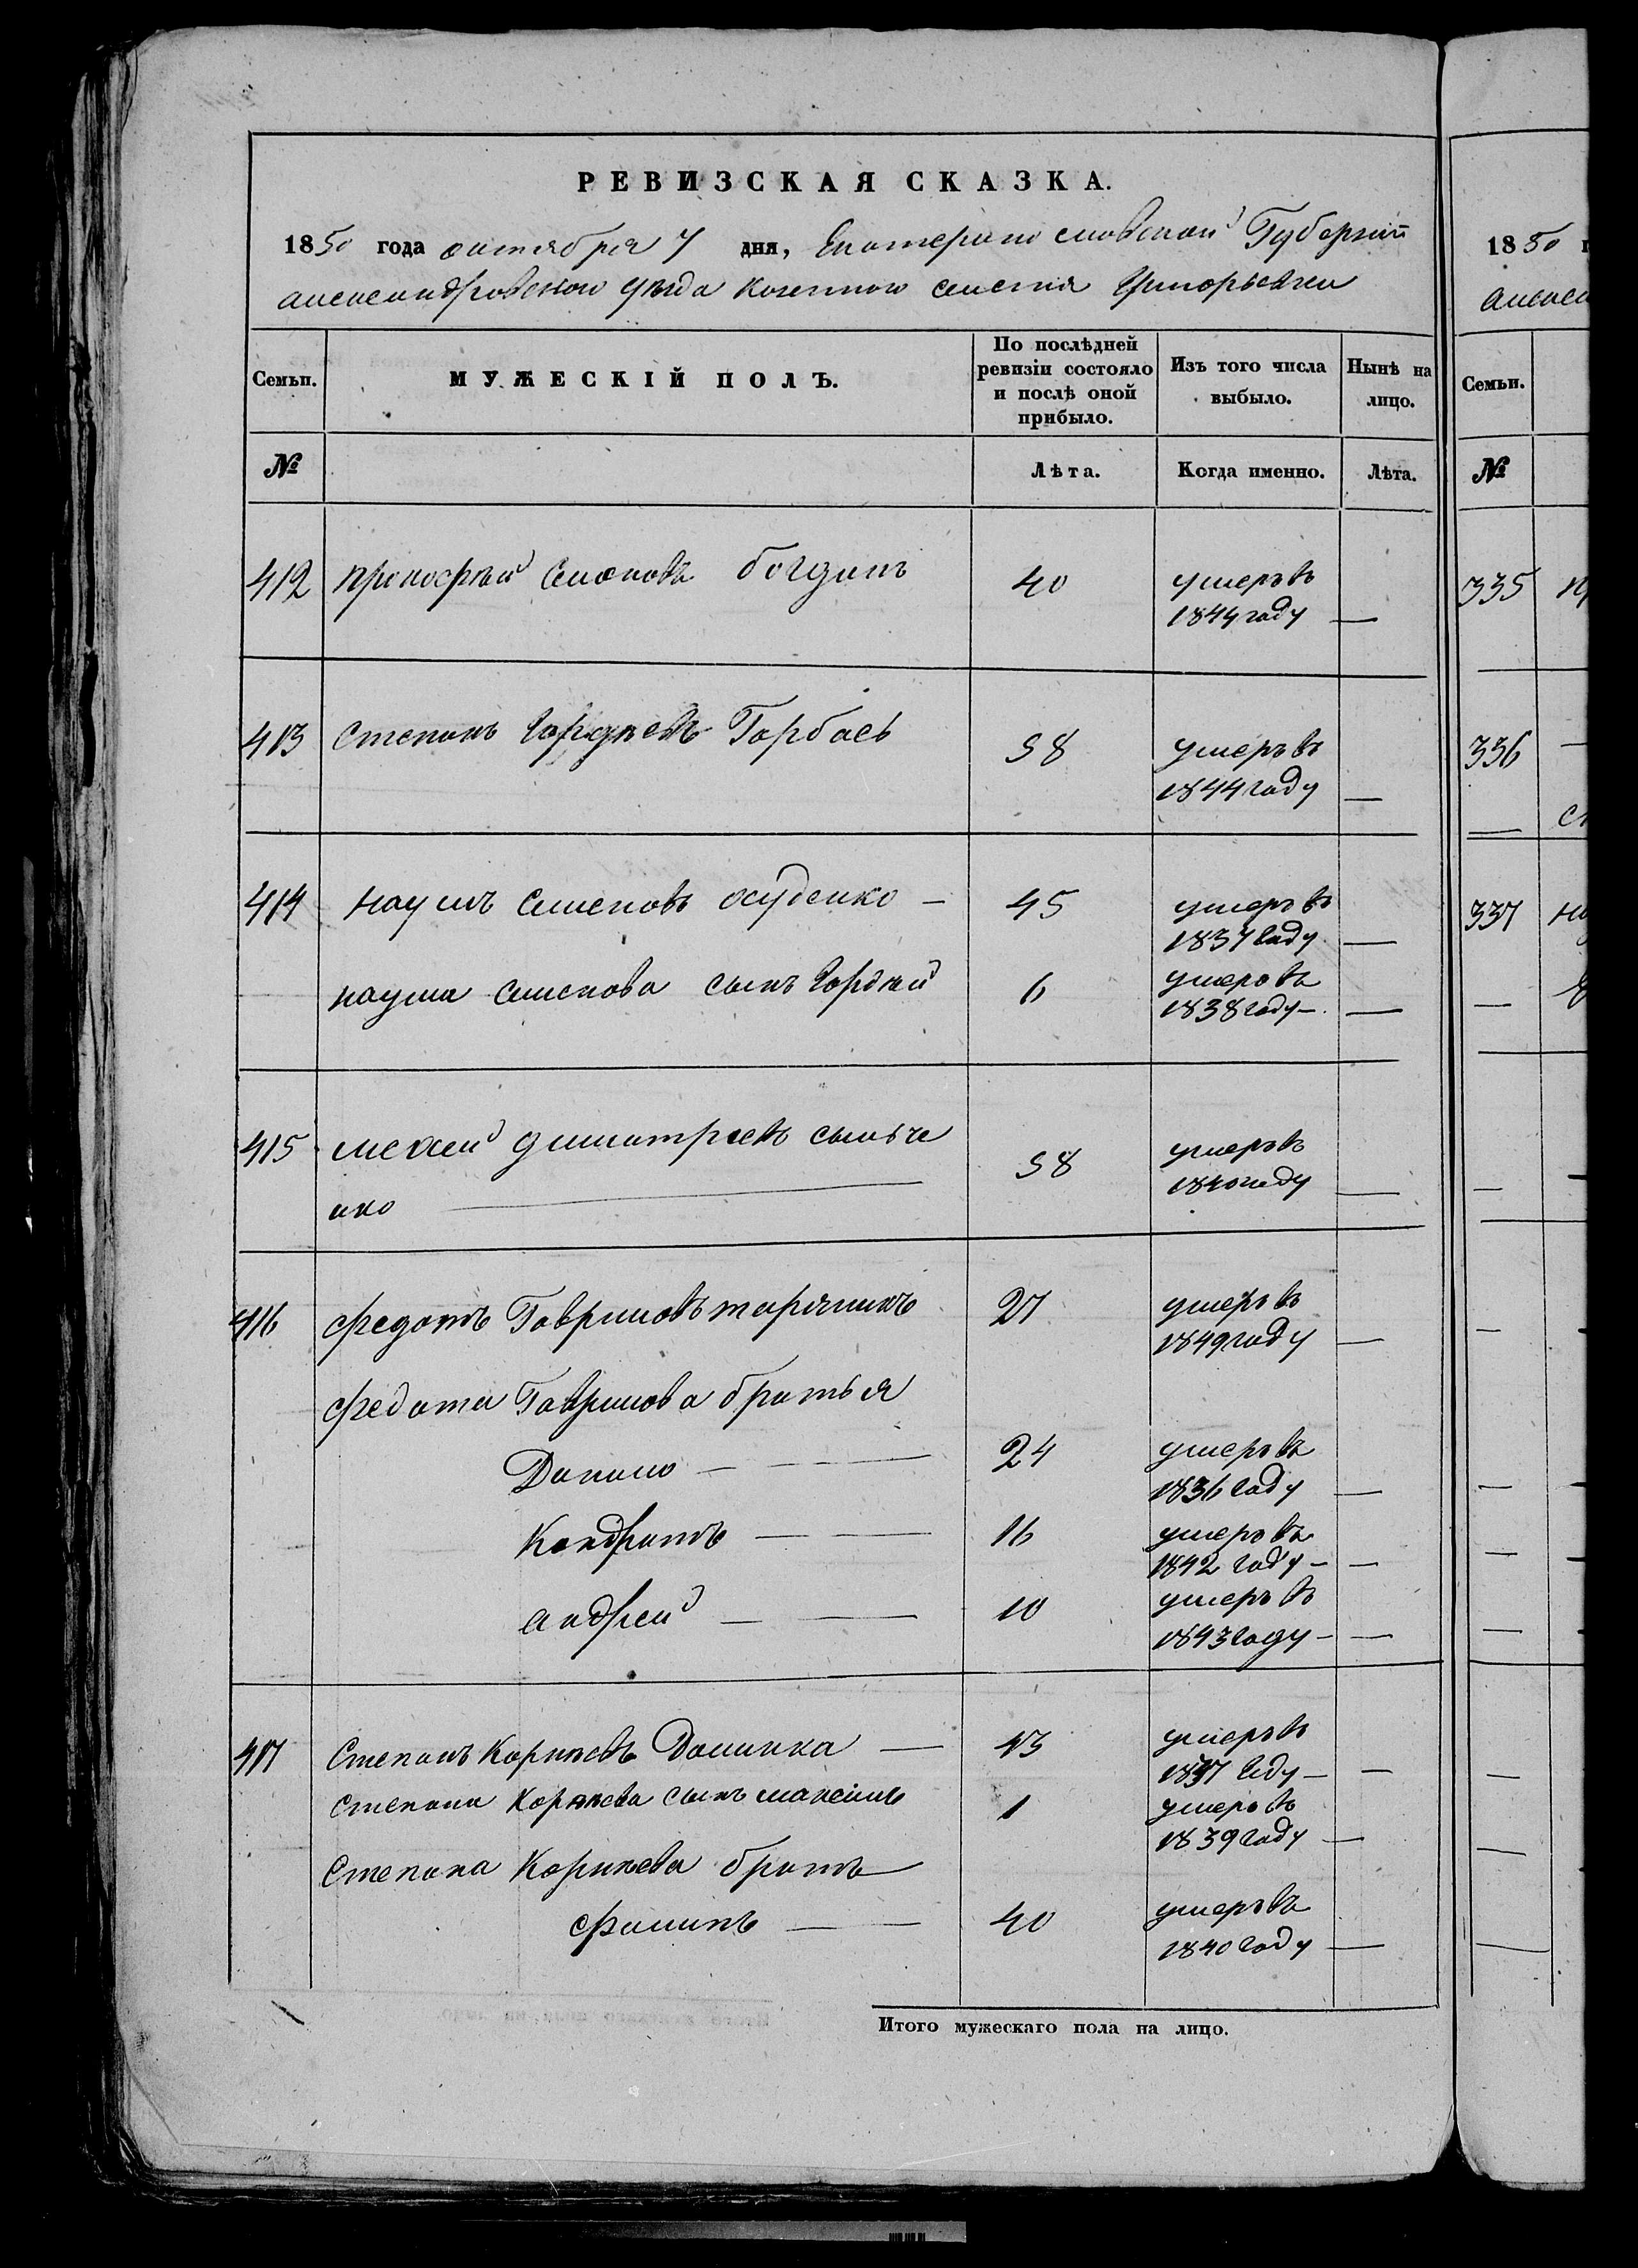 РЕВИЗСКАЯ СКАЗКА.
1850 года октября 7 дня, Екатеринославской Губерніи
Александровского уезда Казенного селения Григорьевки
Семьи.
МУЖЕСКІЙ ПОЛЪ.
По послѣдней
ревизіи состояло
и послѣ оной
прибыло.
Изъ того числа
выбыло.
Нынѣ на
лицо.
№
Лѣта.
Когда именно.
Лѣта.
412 прокофѣй Семеновъ богданъ 40 умеръ въ
1844 году —
413 Степанъ Гордѣевъ Горбась 58 умеръ въ
1844 году —
414 наумъ Семеновъ — 45 умеръ въ
1837 году —
наума Семенова сынъ Гордѣй 6 умеръ въ
1838 году — —
415 димитріевъ 58 умеръ въ
1840 году —
нко
416 федотъ Гавриловъ 27 умеръ въ
1849 году —
федота Гаврилова братья
Данило — — 24 умеръ въ
1836 году —
Кондратъ — — 16 умеръ въ
1842 году — —
андрей — — 10 умеръ въ
1843 году — —
417 Степанъ Корнѣевъ — 43 умеръ въ
году — —
Степана Корнѣева сынъ максимъ 1 умеръ въ
1839 году —
Степана Корнѣева братъ
филипъ — — 40 умеръ въ
1840 году —
Итого мужескаго пола на лицо.
1850
Семьи.
№
335
336
337